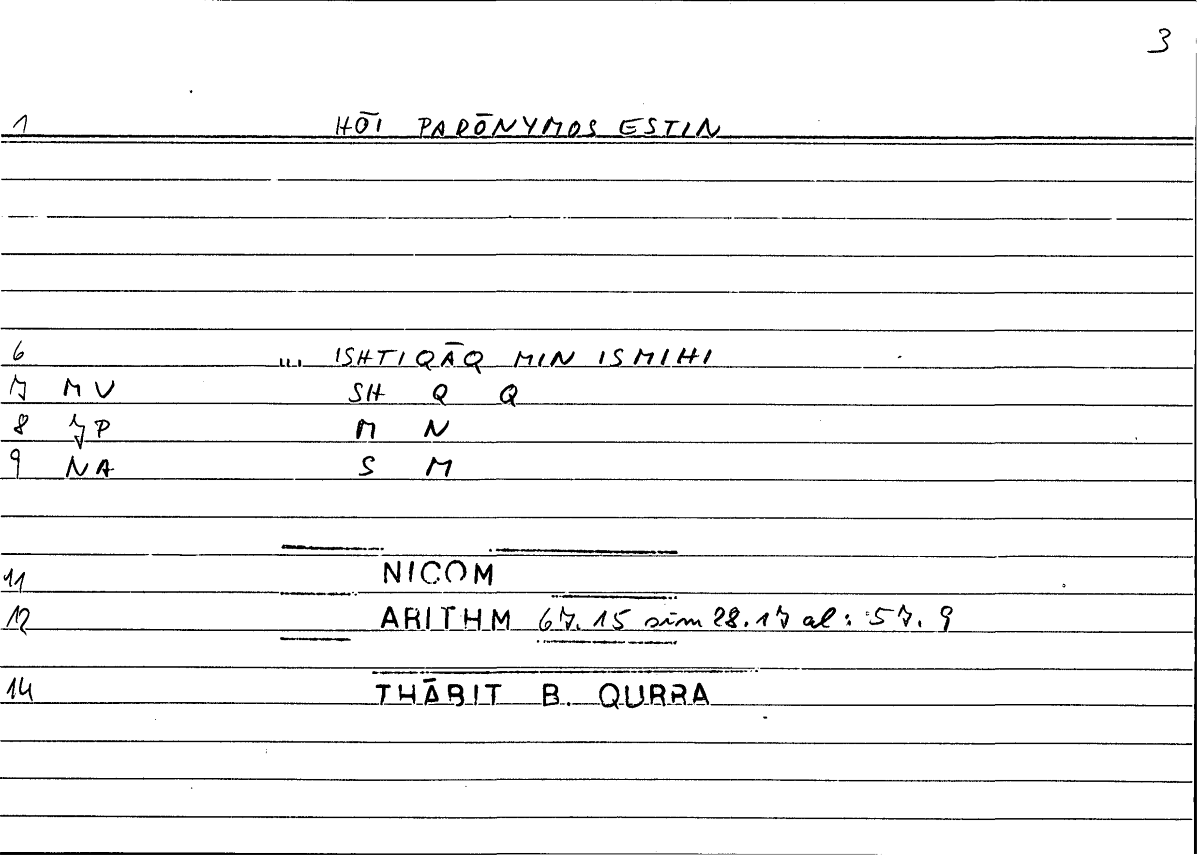 3
1 HŌI PARŌNYMOS ESTIN
6 ... ISHTIQĀQ MIN ISMIHI
7 MV SH Q Q
8 JP M N
9 NA S M
11 NICOM
12 ARITHM 67.15 sim 28.17 al: 57.9
14 THĀBIT B. QURRA